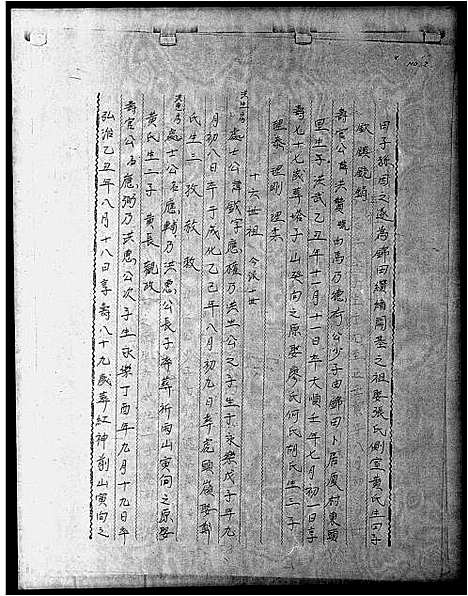 NO.2
田子孫因之遂為錦田纘緒開基之祖娶張氏側室黃氏生四子
欽 鎮 銳 鈞
壽官公諱洪贄號由高乃德有公少子由錦田卜居廈村東頭
里生于洪武乙丑年十一月十一日卒天順壬午年七月初一日享
壽七十七歲葬塔子山癸向之原娶廖氏何氏胡氏生三子
理泰 理剛 理柔
十六世祖 今派一世
洪生房 處士公諱欽字應積乃洪生公之子生于永樂戊子年九
月初八日卒于成化乙巳年八月初九日葬虎頭嶺娶
氏生三 孜 放 敘
洪惠房 處士公名應輔乃洪惠公長子卒葬祈雨山寅向之原娶
黃氏生二子 黃長 觀政
壽官公名應弼乃洪惠公次子生永樂丁酉年九月十九日卒
弘治乙丑年八月十八日享壽八十九歲葬紅神前山寅向之